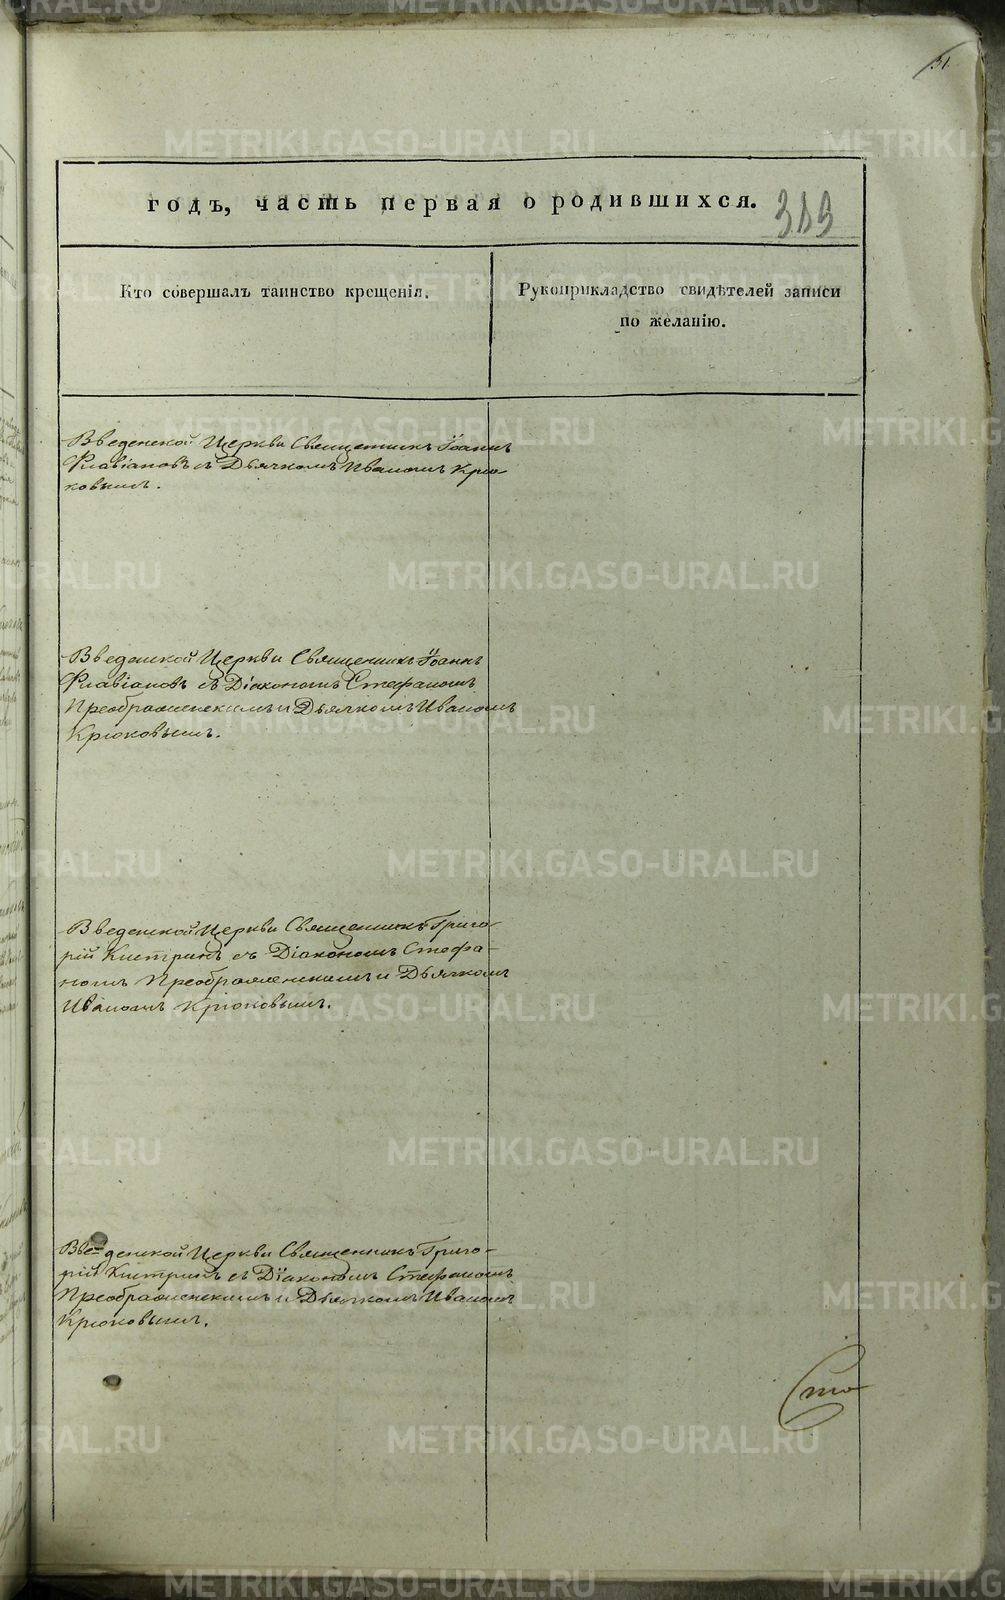 31
годъ, часть первая о родившихся.
389
Кто совершалъ таинство крещенія.
Рукоприкладство свидѣтелей записи
по желанію.
Введенской Церкви Священникъ Іоаннъ
Флавіановъ съ Дьячкомъ Иваномъ Крю
ковымъ.
Введенской Церкви Священникъ Іоаннъ
Флавіановъ съ Діакономъ Стефаномъ
Преображенскимъ и Дьячкомъ Иваномъ
Крюковымъ.
Введенской Церкви Священникъ Григо-
рій Кистринъ съ Діакономъ Стефа-
номъ Преображенскимъ и Дьячкомъ
Иваномъ Крюковымъ.
Введенской Церкви Священникъ Григо-
рій Кистринъ съ Діакономъ Стефаномъ
Преображенскимъ и Дьячкомъ Иваномъ
Крюковымъ.
METRIKI.GASO-URAL.RU